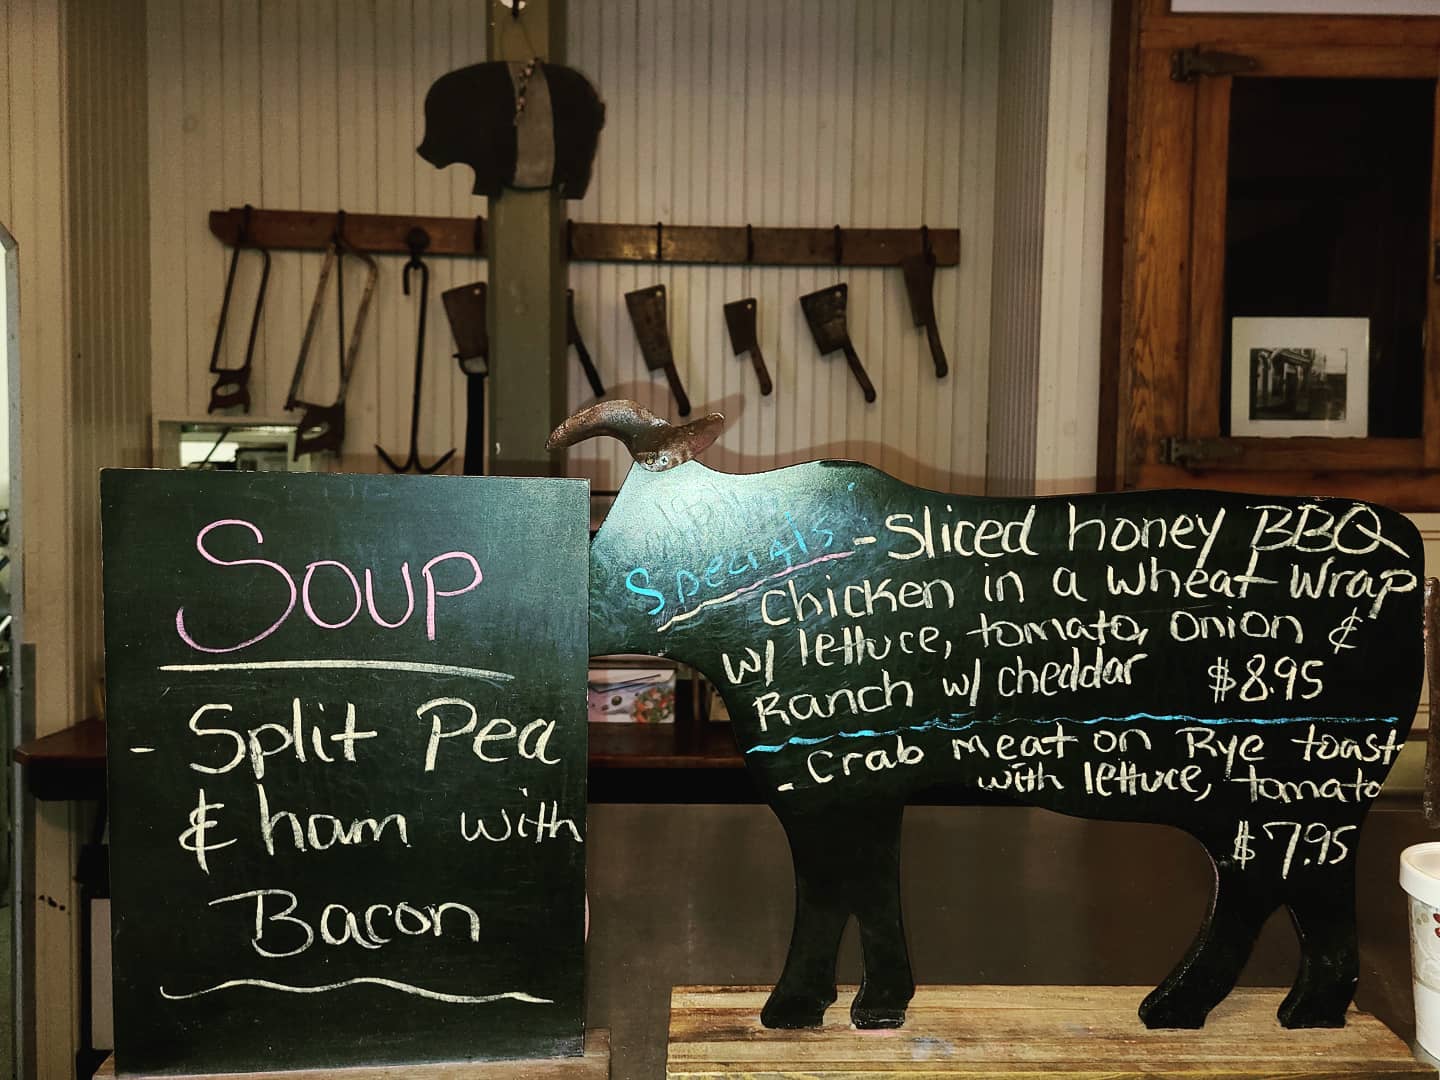 Soup
- Split Pea
& ham with
Bacon
Specials: - Sliced honey BBQ
Chicken in a wheat wrap
w/ lettuce, tomato, onion &
Ranch w/ cheddar $8.95
- Crab meat on Rye toast
with lettuce, tomato
$7.95